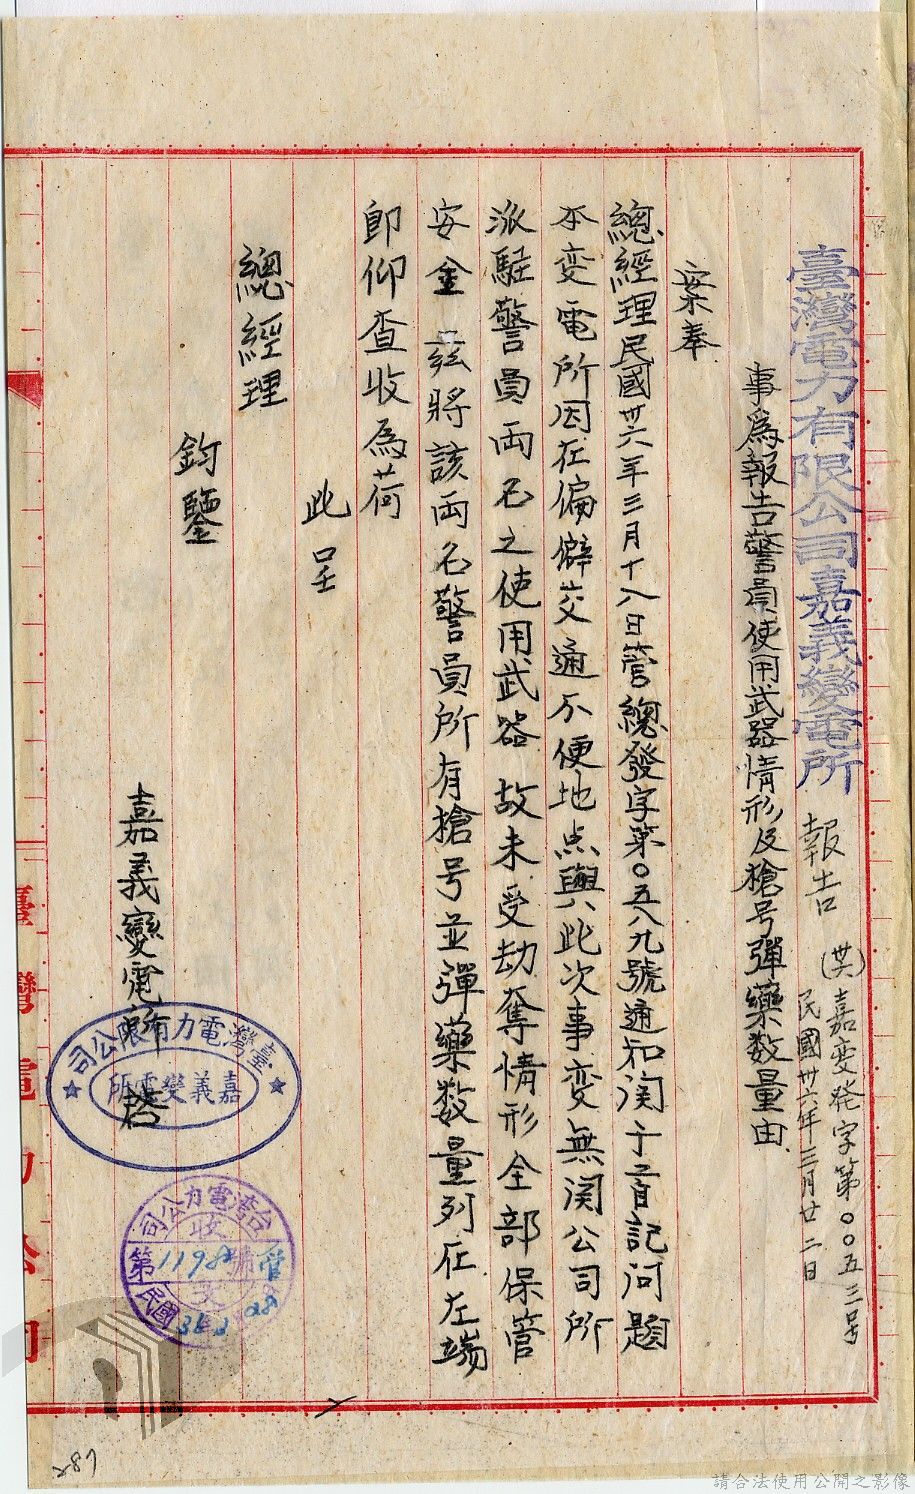 臺灣電力有限公司嘉義變電所 報告
(卅六)嘉变發字第〇〇五三号
民國卅六年三月廿二日
事爲報告警員使用武器情形及槍号彈藥数量由
案奉
總經理民國卅六年三月十八日管總發字第〇五八九號通知関于首記问題
本变電所因在偏僻交通不便地点與此次事变無関公司所
派駐警員両名之使用武器故未受劫奪情形全部保管
安全茲將該両名警員所有槍号並彈藥数量列在左端
即仰查收為荷
此呈
總經理
鈞鑒
嘉義變電所
臺灣電力有限公司
嘉義變電所
台湾電力公司
收文
第1198號
民國36.3.28
臺灣電力公司
請合法使用公開之影像